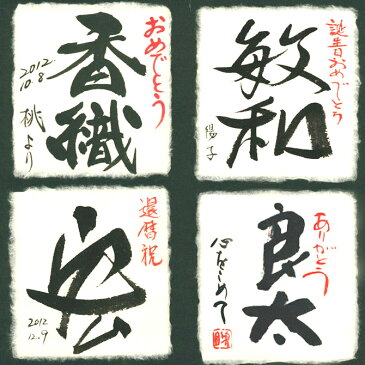 おめでとう
香織
2012.
10.8
桃より
誕生日おめでとう
敏和
陽子
還暦祝
2012
12.9
ありがとう
良太
心をこめて